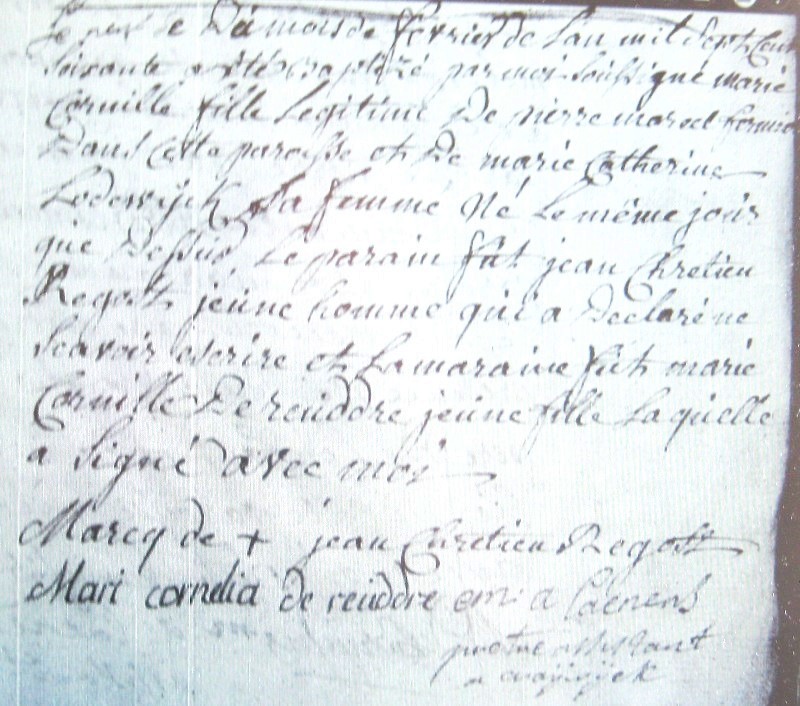 du mois de fevrier de l'an mil sept cent
soixante a été baptizé par moi soussigné marie
Cornille fille legitime De pierre marcel fermier
Dans cette paroisse et De marie Catherine
Lodewijck sa femme Né le même jour
que Dessus, le parain fut jean Chretien
Regost jeune homme qui a Declaré ne
scavoir escrire et la maraine fut marie
Cornille De reuddre jeune fille laquelle
a signé avec moi
Marcq de + jean Chretien Regost
Mari cornelia de reuddre em: a
pretre assistant
a